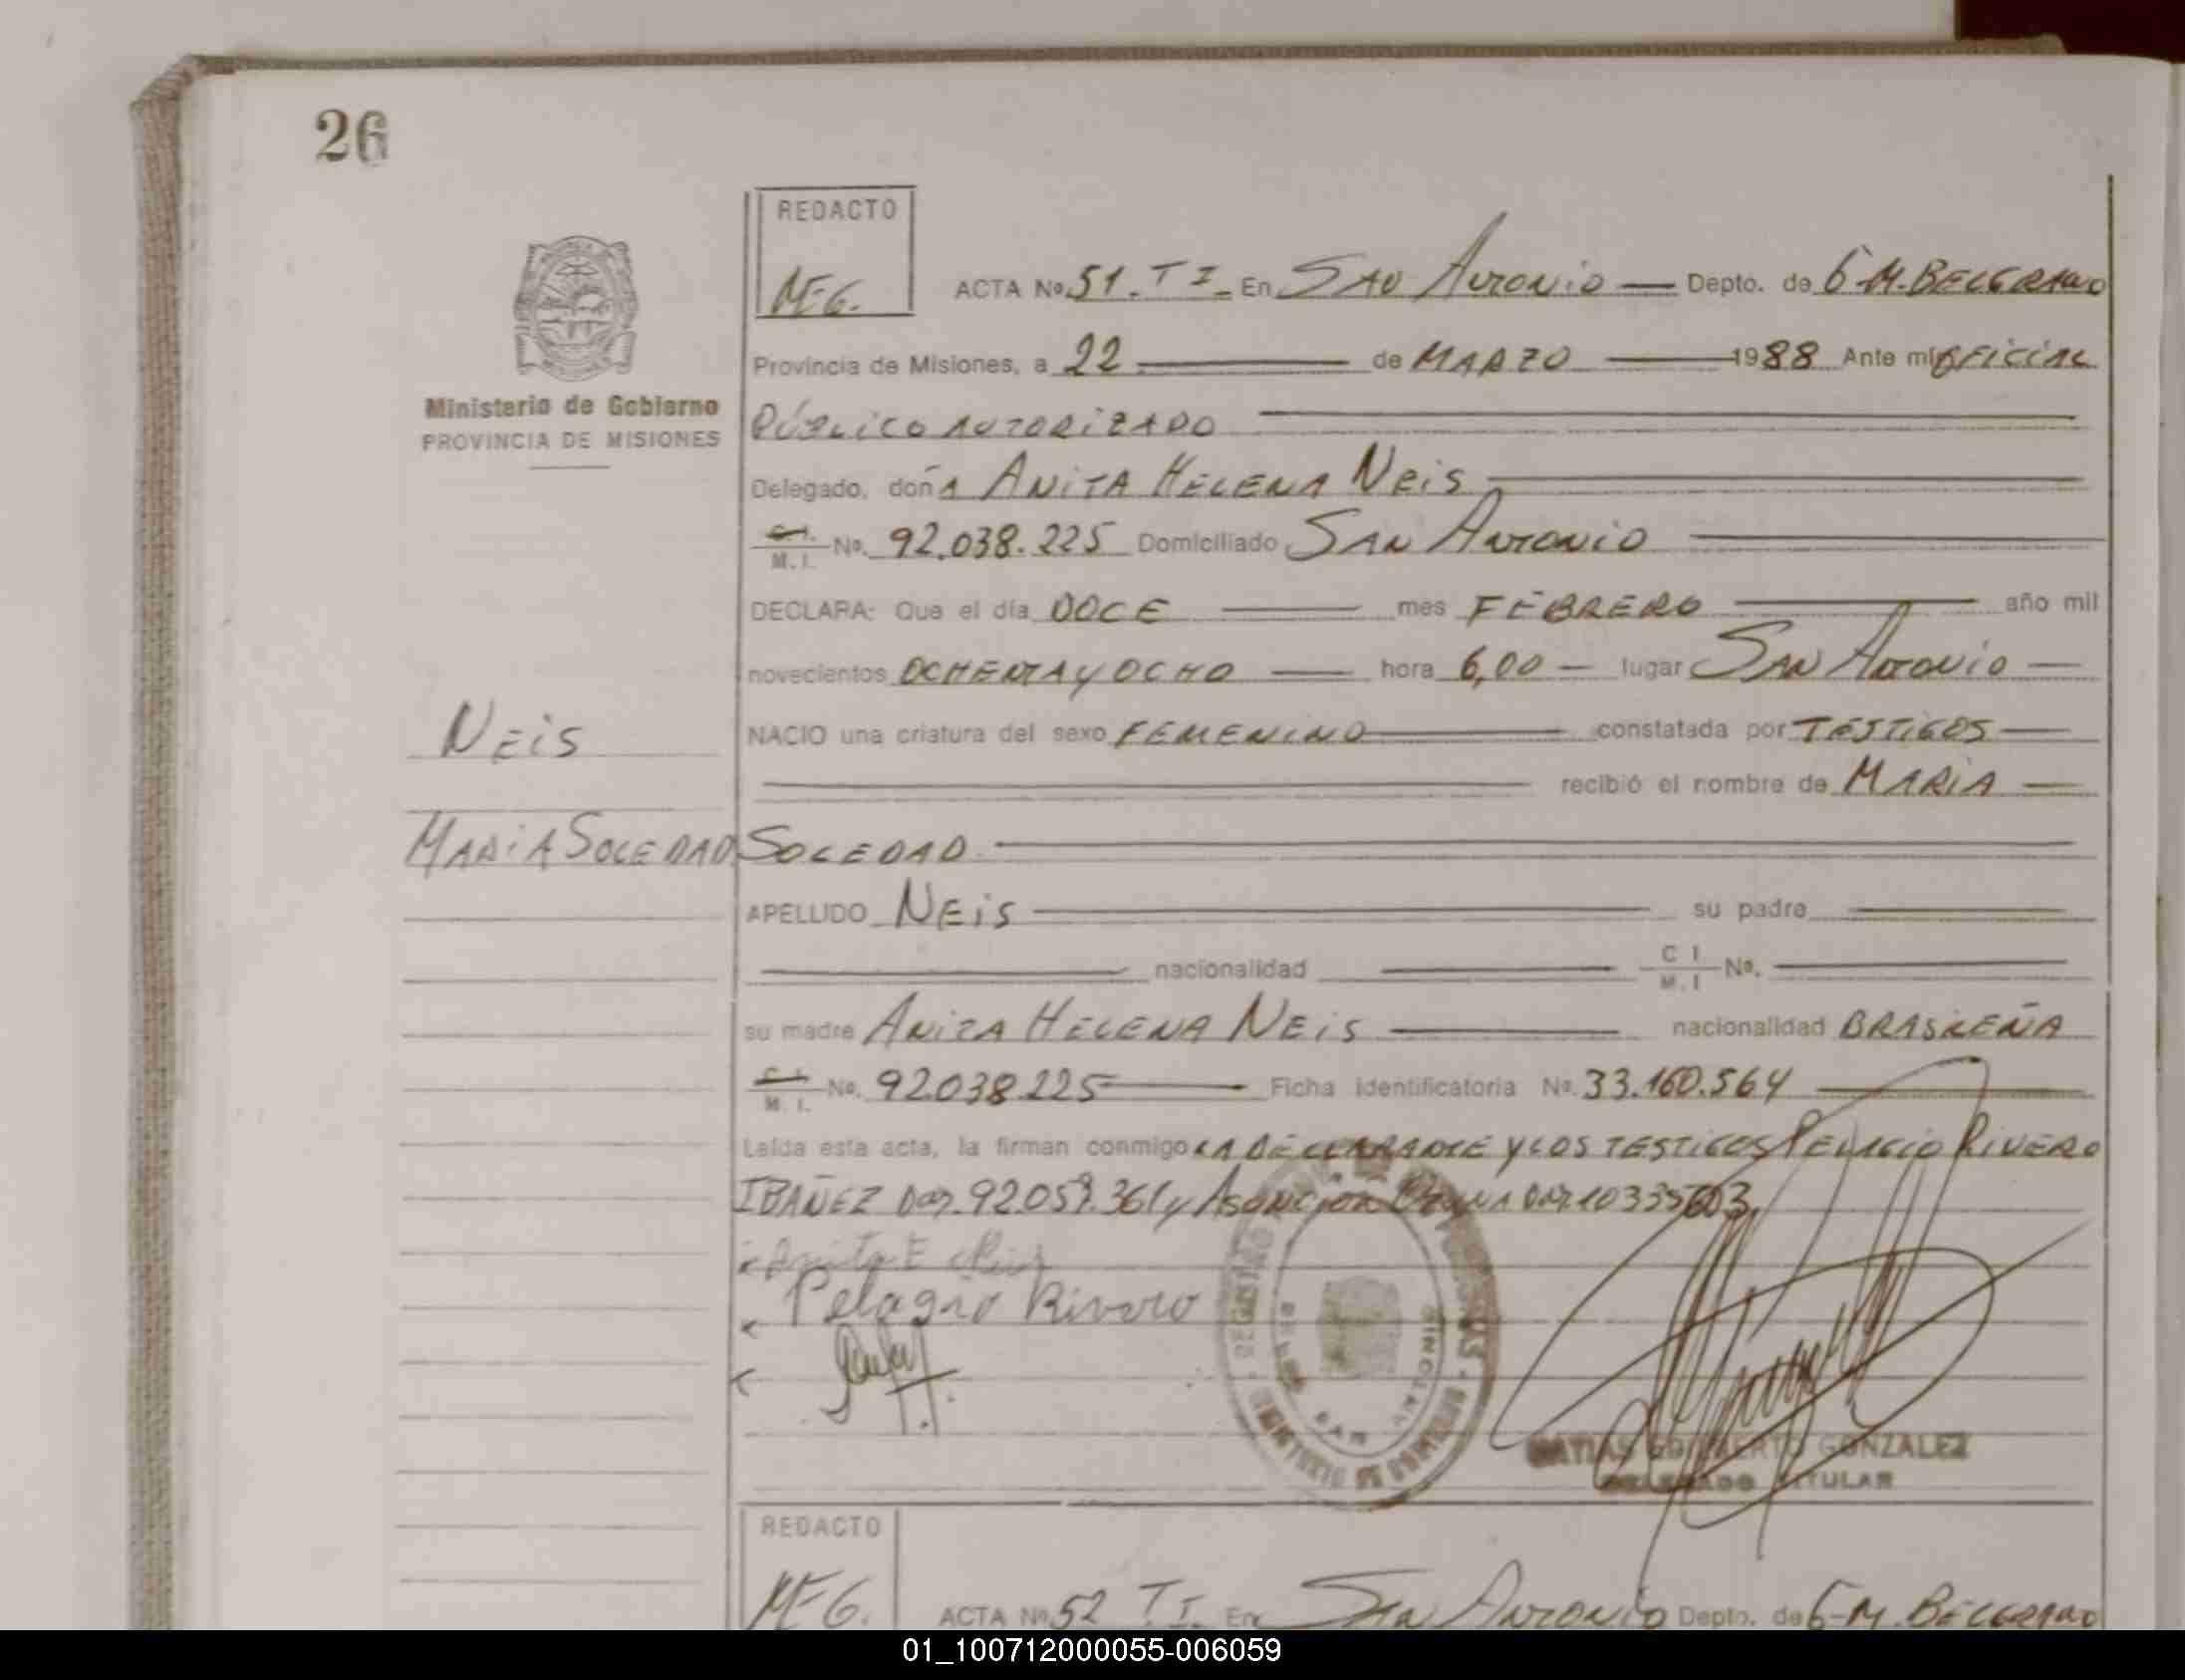 26
REDACTO
M-G.
ACTA No. 51. T I. En SAN ANTONIO — Depto. de G-M. BELGRANO
Ministerio de Gobierno
PROVINCIA DE MISIONES
Provincia de Misiones, a 22 — de MARZO — 1988 Ante mi OFICIAL
PÚBLICO AUTORIZADO
Delegado, doña ANITA HELENA NEIS
C.I. M.I. No. 92.038.225 Domiciliado SAN ANTONIO
DECLARA: Que el día DOCE — mes FEBRERO — año mil
novecientos OCHENTA Y OCHO — hora 6,00 — lugar SAN ANTONIO —
NACIO una criatura del sexo FEMENINO — constatada por TESTIGOS —
— recibió el nombre de MARIA —
NEIS
MARIA SOLEDAD
SOLEDAD
APELLIDO NEIS — su padre —
— nacionalidad — C I M.I No. —
su madre ANITA HELENA NEIS — nacionalidad BRASILEÑA
C.I. M.I. No. 92038225 — Ficha identificatoria No. 33.160.564 —
Leída esta acta, la firman conmigo LA DECLARANTE Y LOS TESTIGOS PELAGIO RIVERO
IBAÑEZ 92.059.361 y ASUNCION 10335603.
Anita E Neis
Pelagio Rivero
REGISTRO DE LAS PERSONAS
MINISTERIO DE GOBIERNO
SAN ANTONIO
MATIAS EDILBERTO GONZALEZ
DELEGADO TITULAR
REDACTO
M-G.
ACTA No. 52 T I. En SAN ANTONIO Depto. de G-M. BELGRANO
01_100712000055-006059